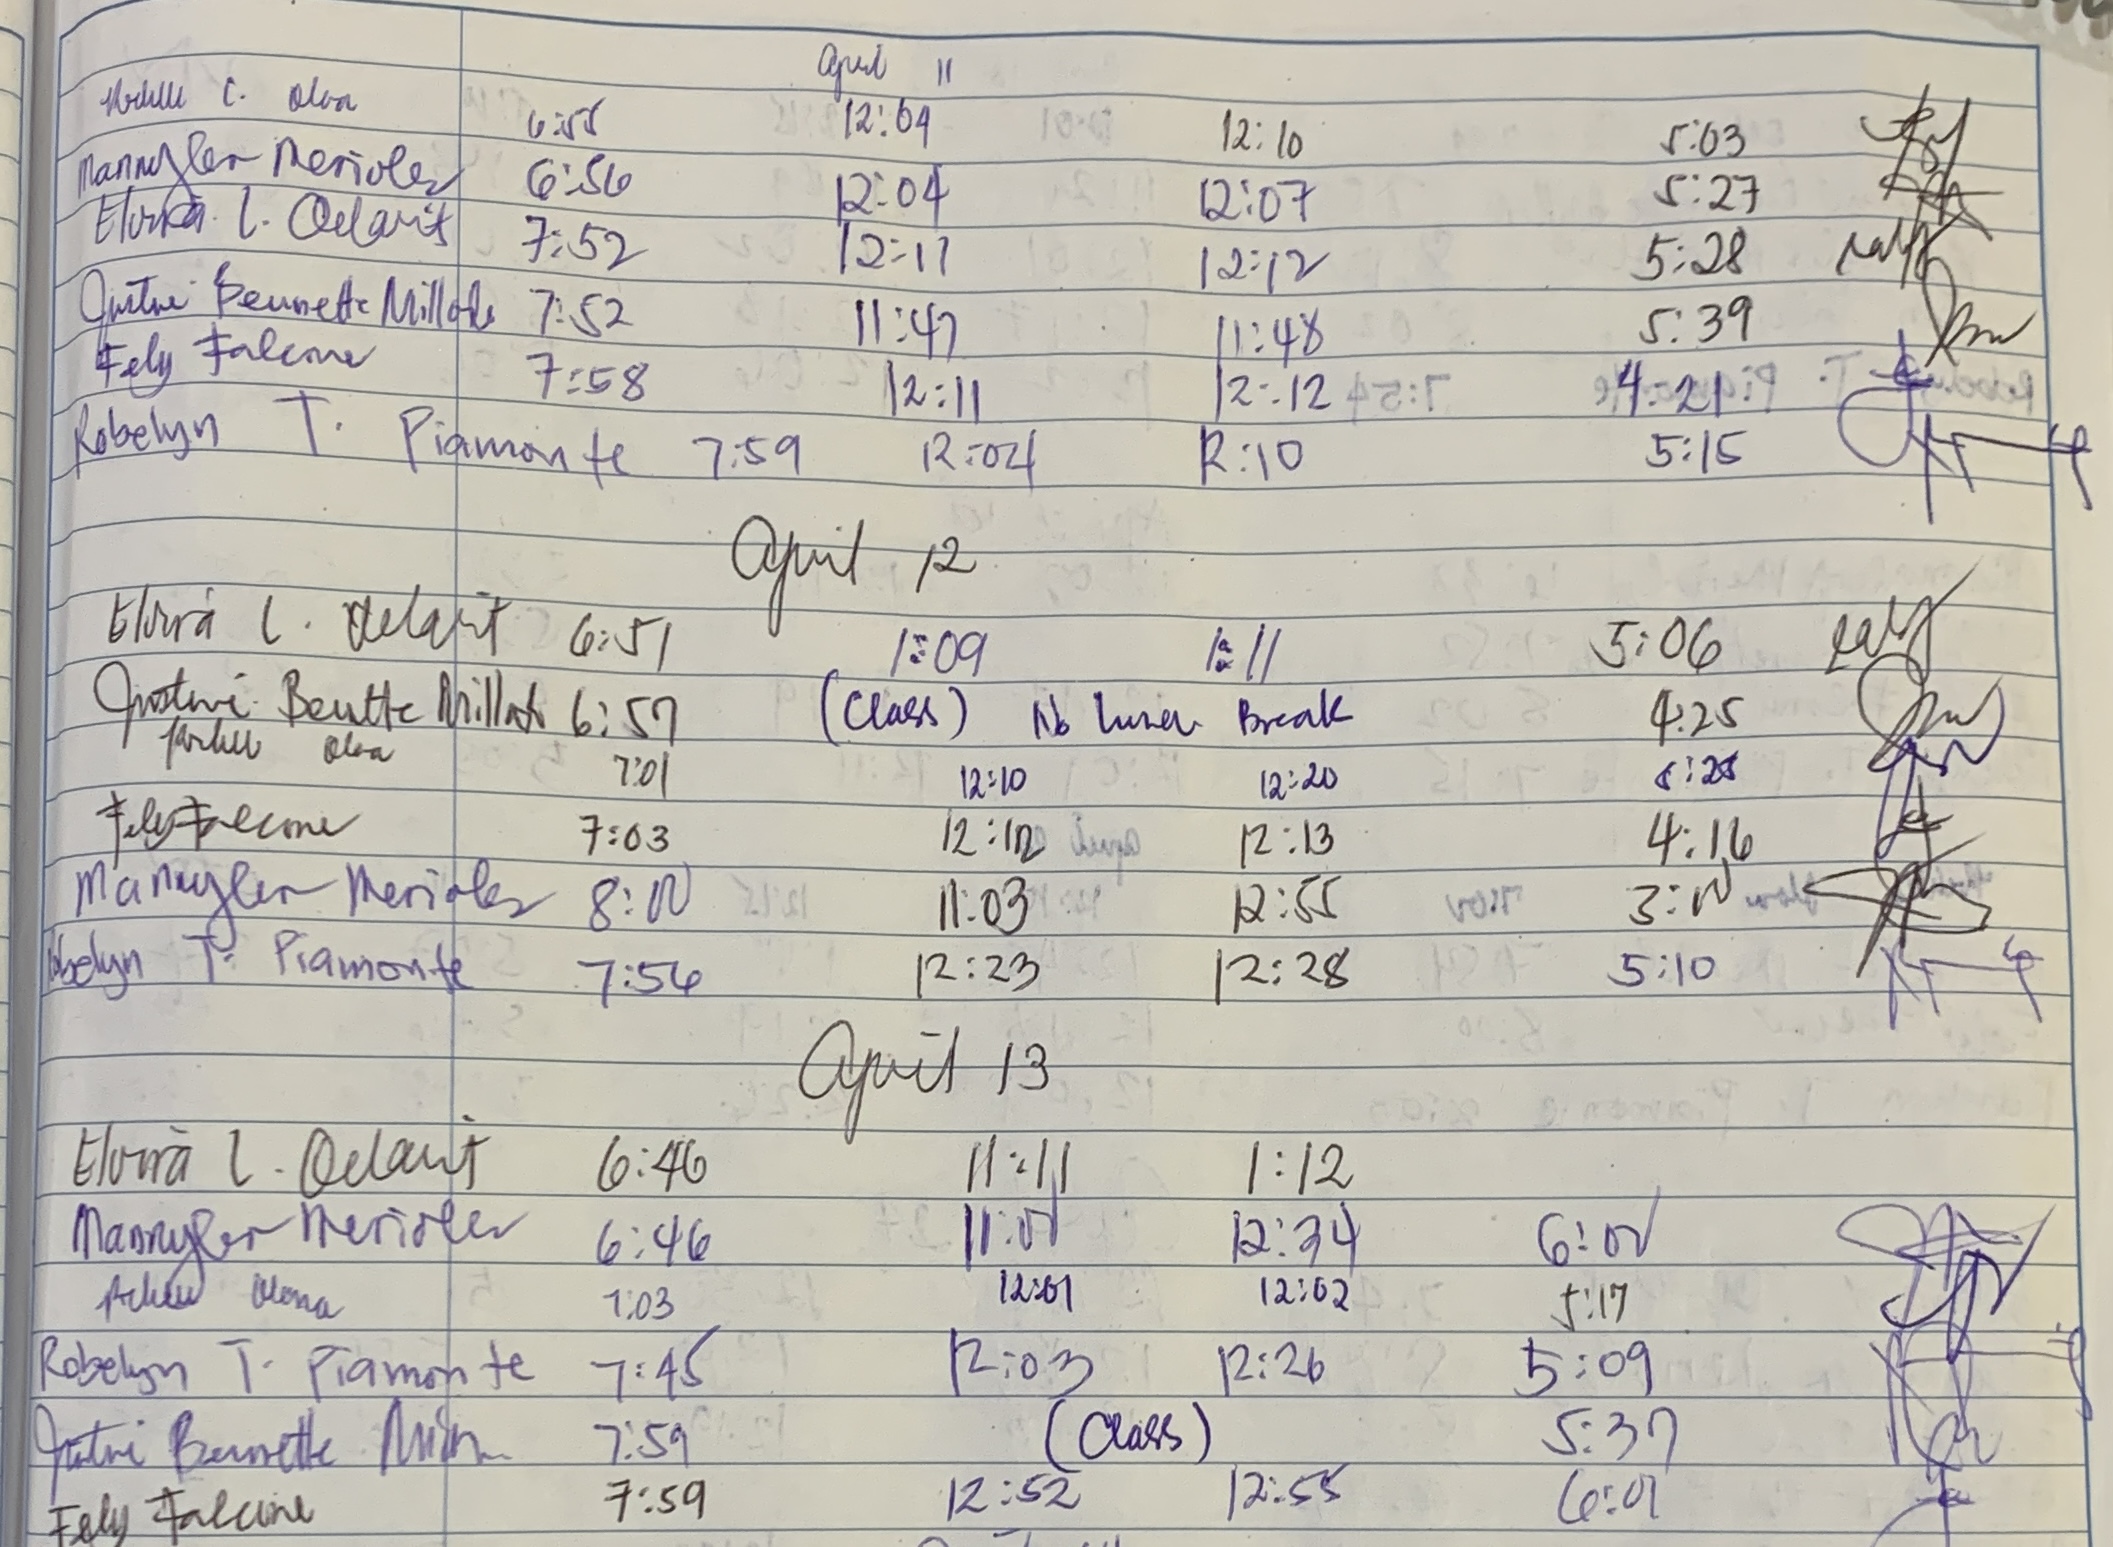 April 11
C. Olora 6:55 12:09 12:10 5:03
Mannyler Merioles 6:56 12:04 12:07 5:27
Elvira L. Odavit 7:52 12:11 12:12 5:28
Bennette 7:52 11:47 11:48 5:39
Fely Falcone 7:58 12:11 12:12 4:21
Robelyn T. Piamonte 7:59 12:04 12:10 5:15
April 12
Elvira L. Odavit 6:51 1:09 1:11 5:06
6:57 (Class) No Break 4:25
7:01 12:10 12:20
Fely Falcone 7:03 12:12 12:13 4:16
Mannyler Merioles 8:00 11:03 12:55 3:00
Robelyn T. Piamonte 7:56 12:23 12:28 5:10
April 13
Elvira L. Odavit 6:46 11:11 1:12
Mannyler Merioles 6:46 12:34
7:03 12:01 12:02 5:17
Robelyn T. Piamonte 7:45 12:03 12:26 5:09
Bennette 7:59 (Class) 5:37
Fely Falcone 7:59 12:52 12:55 6:01